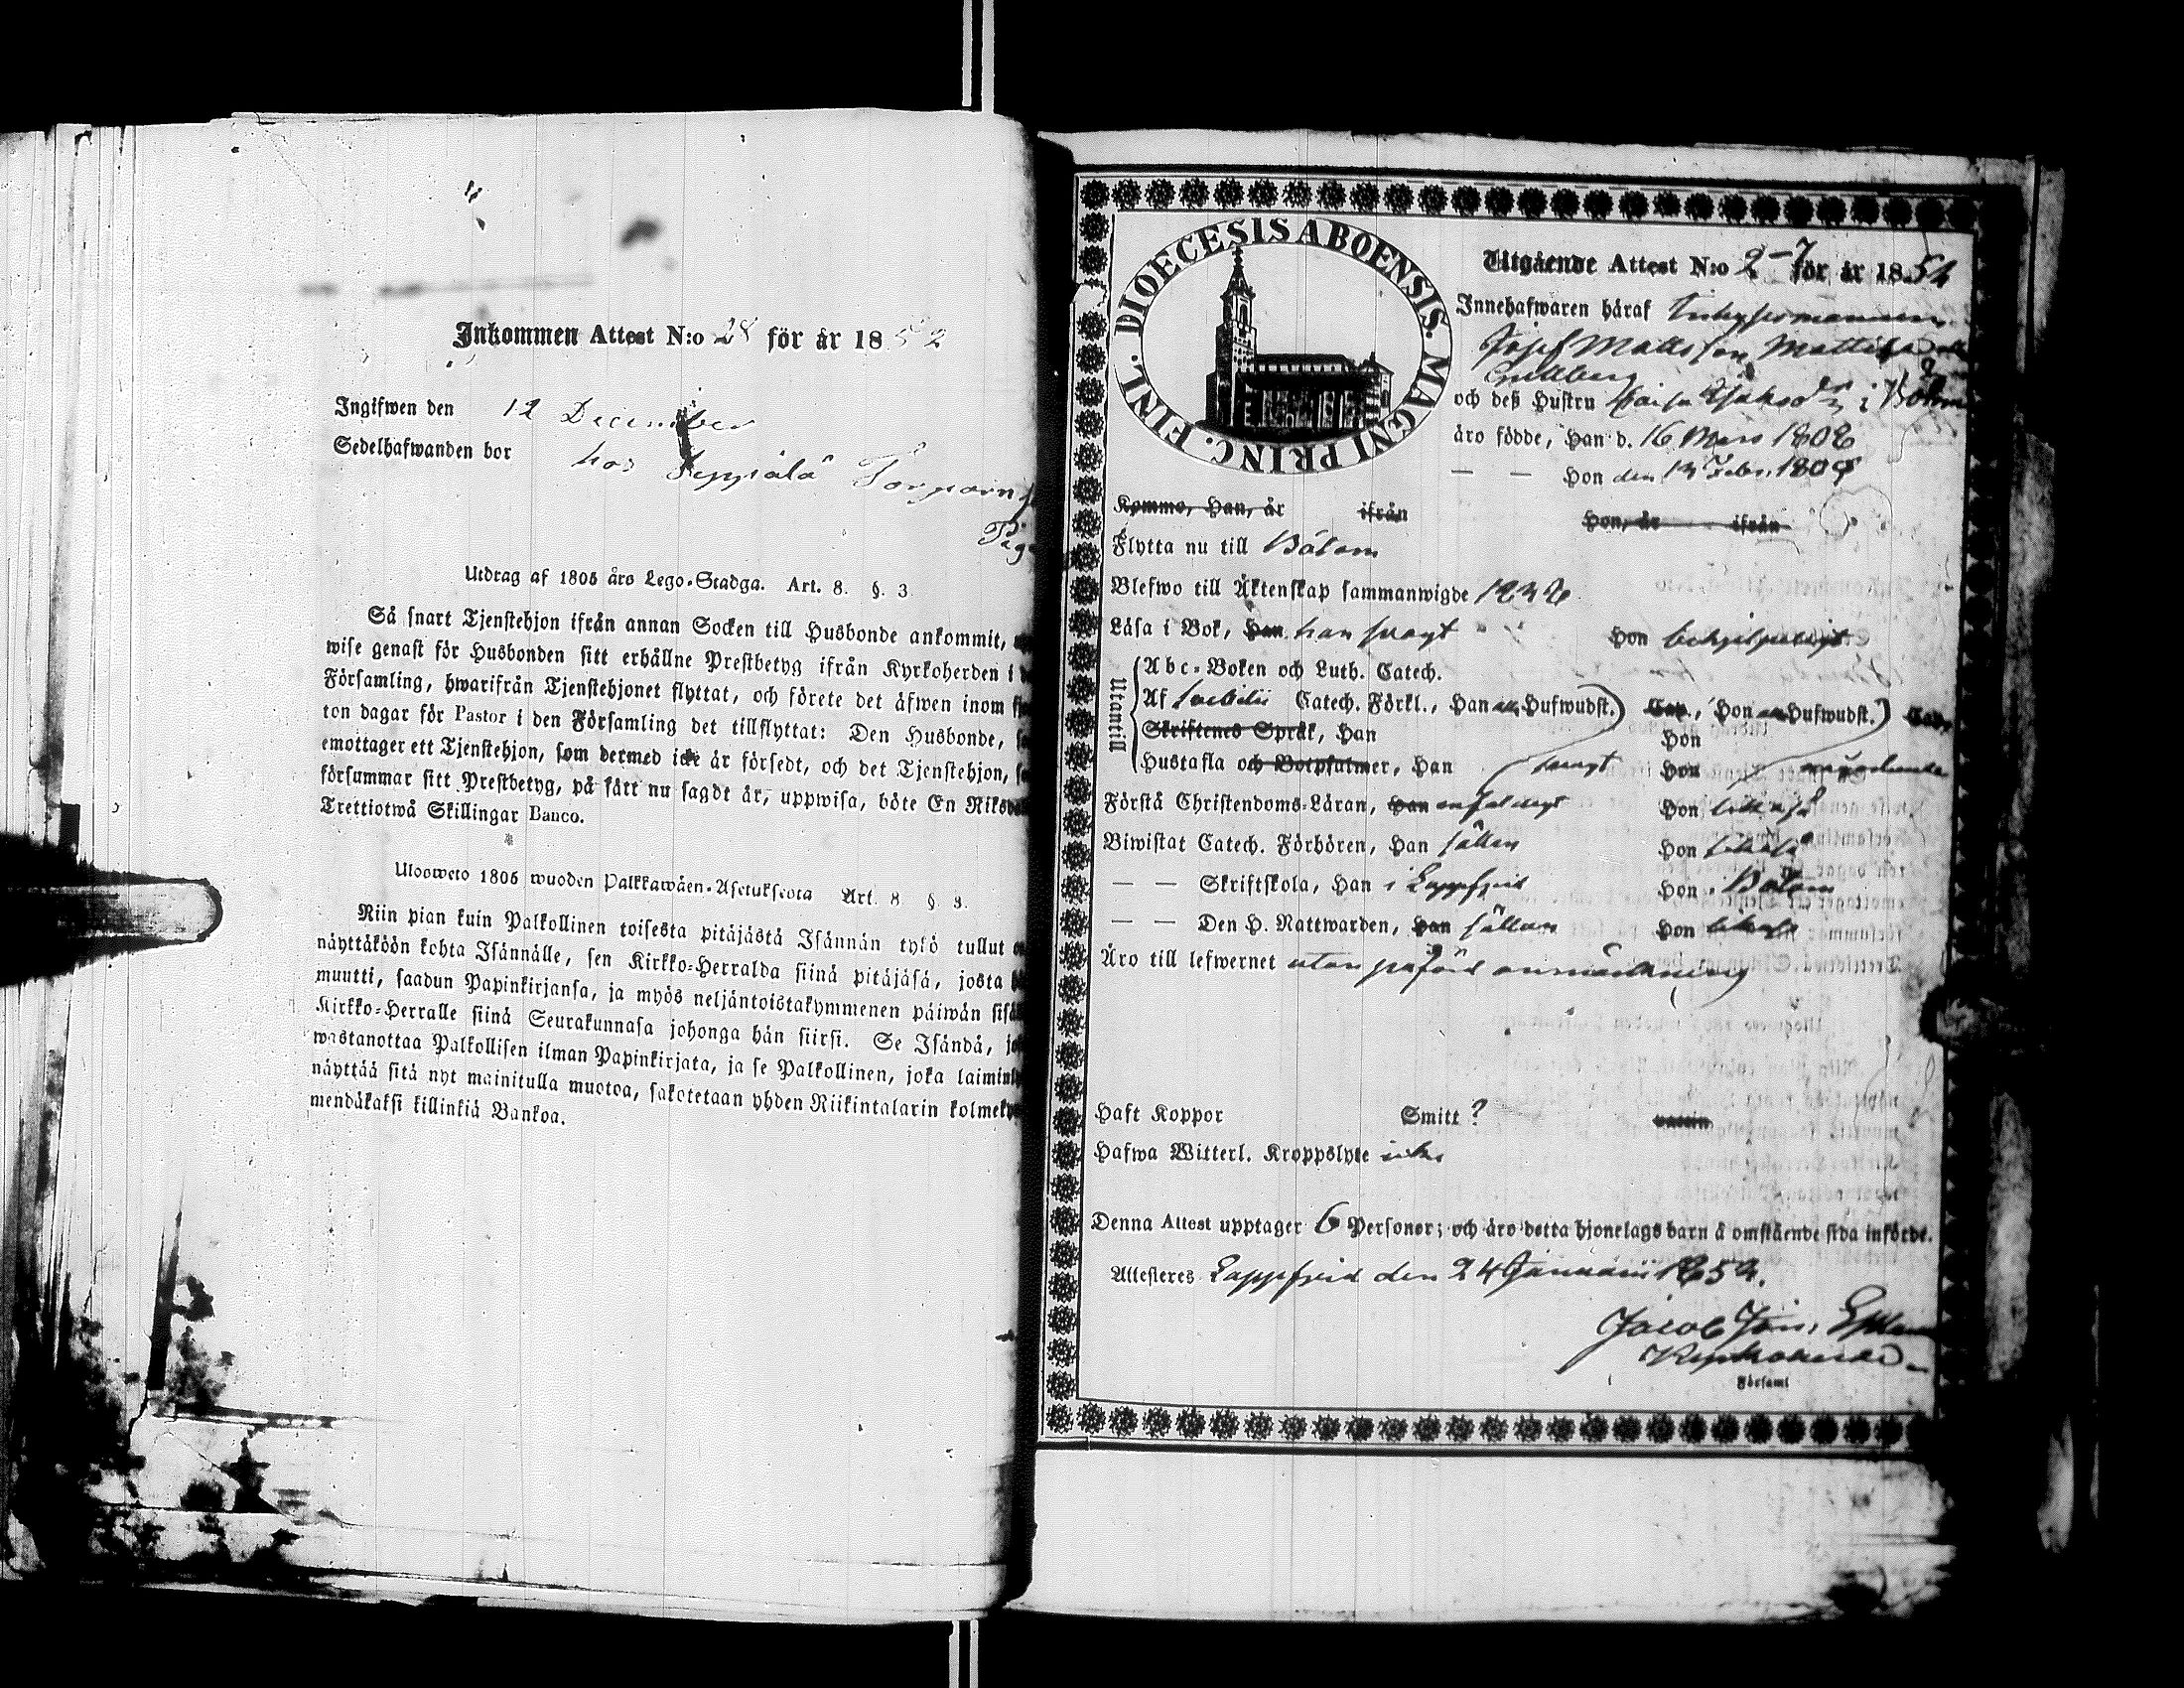 Inkommen Attest N:o 28 för år 1852
Ingifwen den 12 December
Sedelhafwanden bor hos Seppälä
Utdrag af 1805 års Lego-Stadga. Art. 8. §. 3.
Så snart Tjenstehjon ifrån annan Socken till Husbonde ankommit,
wise genast för Husbonden sitt erhållne Prestbetyg ifrån Kyrkoherden i
Församling, hwarifrån Tjenstehjonet flyttat, och förete det äfwen inom
ton dagar för Pastor i den Församling det tillflyttat: Den Husbonde,
emottager ett Tjenstehjon, som dermed icke är försedt, och det Tjenstehjon,
försummar sitt Prestbetyg, på sätt nu sagdt är, uppwisa, böte En
Trettiotwå Skillingar Banco.
Ulosweto 1805 wuoden Palkkawäen-Asetuksesta Art. 8 §. 3.
Niin pian kuin Palkollinen toisesta pitäjästä Isännän tykö tullut
näyttäköön kohta Isännälle, sen Kirkko-Herralda siinä pitäjäsä, josta
muutti, saadun Papinkirjansa, ja myös neljäntoistakymmenen päiwän
Kirkko-Herralle siinä Seurakunnasa johonga hän siirsi. Se Isändä,
wastanottaa Palkollisen ilman Papinkirjata, ja se Palkollinen, joka
näyttää sitä nyt mainitulla muotoa, sakotetaan yhden Riikintalarin
mendäkaksi killinkiä Bankoa.
DIOECESIS ABOENSIS. MAGNI PRINC. FINL.
Utgående Attest N:o 2-7 för år 1854
Innehafwaren häraf
Josef Mattsson
och deß Hustru Caisa i
äro födde, Han d. 16 Mars 1808
— — Hon den 13 Febr. 1808
Komme, Han, år ifrån Hon, år ifrån
Flytta nu till Bötom
Blefwo till Äktenskap sammanwigde 1832
Läsa i Bok, han swagt Hon behjelpeligt
Utantill
Abc-Boken och Luth. Catech.
Af Swebilii Catech. Förkl., Han Hufwudst. Cap., Hon Hufwudst.
Skriftenes Språk, Han Hon
Hustafla och Botpsalmer, Han swagt Hon
Förstå Christendoms-Läran, Han enfaldigt Hon likaså
Biwistat Catech. Förhören, Han sällan Hon likaså
— — Skriftskola, Han i Lappfjerd Hon i Bötom
— — Den H. Nattwarden, han sällan Hon likaså
Äro till lefwernet utan påförd anmärkning
Haft Koppor Smitt ?
Hafwa Witterl. Kroppslyte icke
Denna Attest upptager 6 Personer; och äro detta hjonelags barn å omstående sida införde.
Attesteras Lappfjerd den 24 Januarii 1854.
Jacob Joh.
Kyrkoherde
Församl